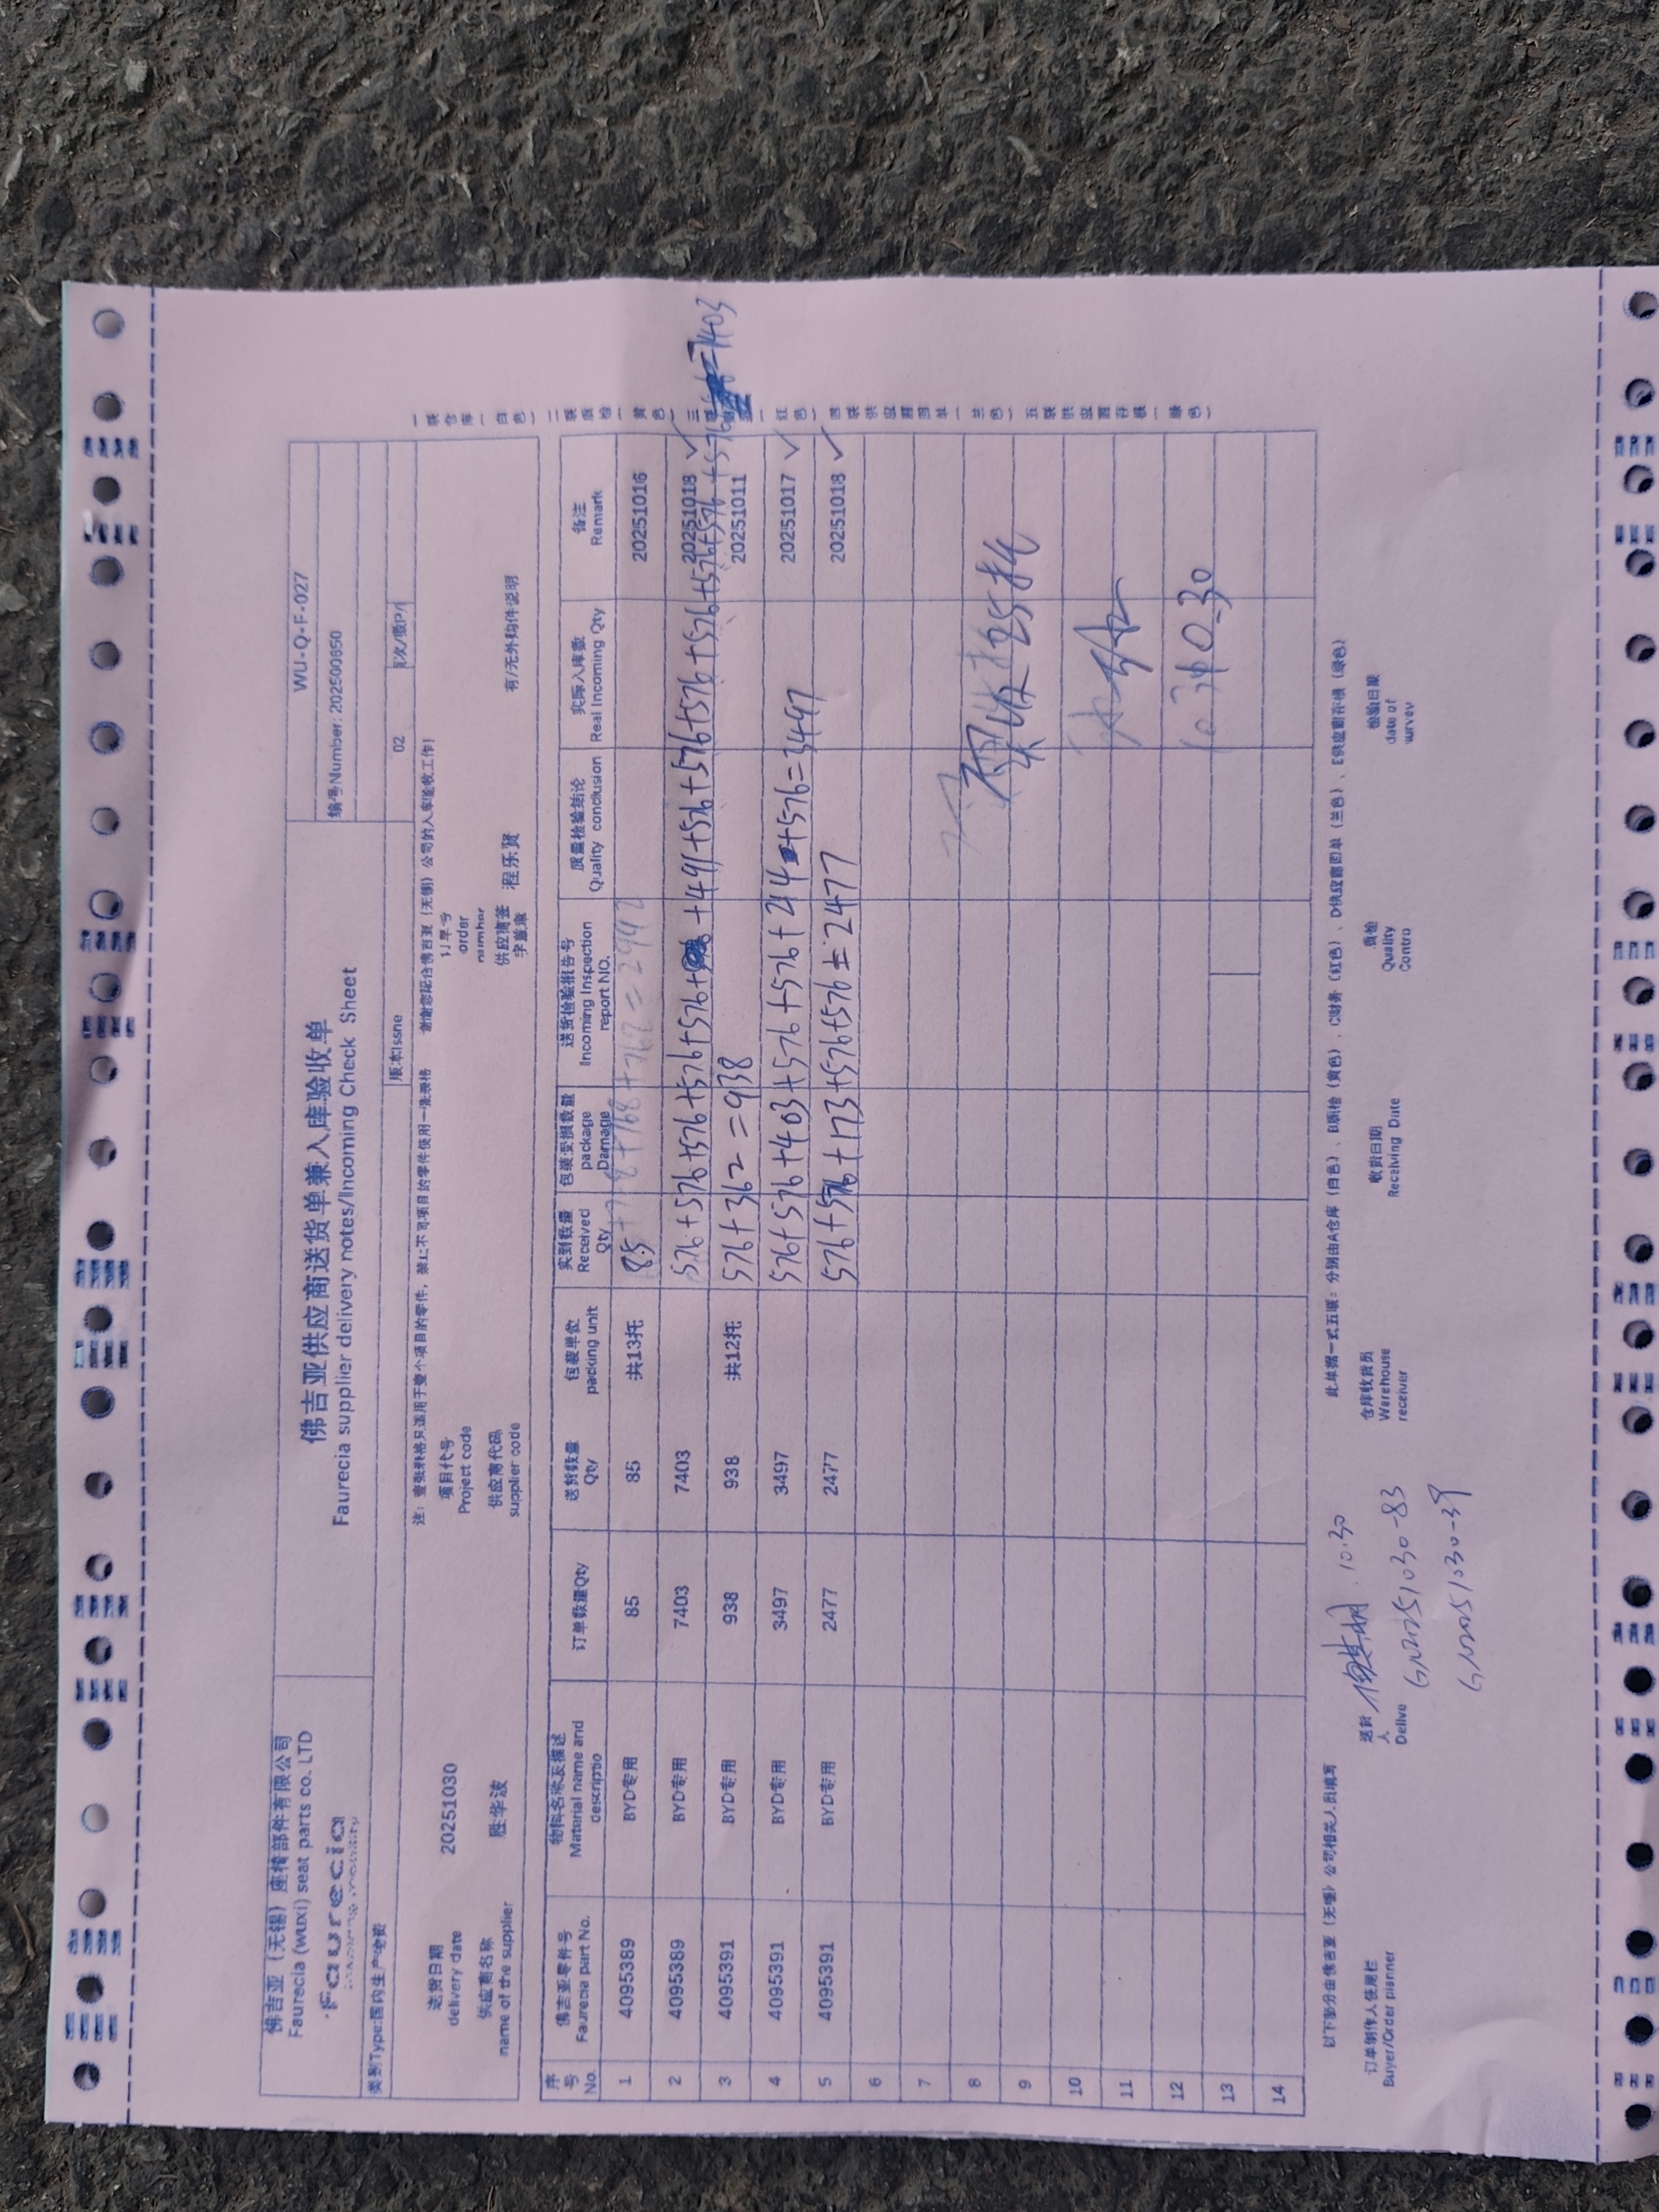 佛吉亚（无锡）座椅部件有限公司
Faurecia (wuxi) seat parts co. LTD
Faurecia
佛吉亚供应商送货单兼入库验收单
Faurecia supplier delivery notes/Incoming Check Sheet
WU-Q-F-027
编号Number: 202500650
类别Type:国内生产物资
版本Issne
02
页次/版P/
注：壹张单格只适用于壹个项目的零件，禁止不同项目的零件使用一张表格 谢谢您配合佛吉亚（无锡）公司的入库验收工作!
送货日期
delivery date
20251030
项目代号
Project code
订单号
order
number
供应商名称
name of the supplier
胜华波
供应商代码
supplier code
供应商签
字盖章
程乐贤
有/无外购件说明
序号 No. 佛吉亚零件号 Faurecia part No. 物料名称及描述 Material name and descriptio 订单数量Qty 送货数量 Qty 包装单位 packing unit 实到数量 Received Qty 包装受损数量 package Damage 送货检验报告号 Incoming Inspection report NO. 质量检验结论 Quality conclusion 实际入库数 Real Incoming Qty 备注 Remark
1 4095389 BYD专用 85 85 共13托 85 20251016
2 4095389 BYD专用 7403 7403 20251018 ✓
576+576+576+576+576+576+ +491+576+576+576+576+576+576+576 =7403
3 4095391 BYD专用 938 938 共12托 576+362=938 20251011
4 4095391 BYD专用 3497 3497 576+576+403+576+576+214 +576=3497 20251017 ✓
5 4095391 BYD专用 2477 2477 576+576+173+576+576 = 2477 20251018 ✓
6
7
8
9
10
11
12
13
14
25托
10.30
一联仓库（白色） 二联质检（黄色） 三联 （红色） 四联供应商回单（兰色） 五联供应商存根（绿色）
以下部分由佛吉亚（无锡）公司相关人员填写
此单据一式五联：分别由A仓库（白色）、B质检（黄色）、C财务（红色）、D供应商回单（兰色）、E供应商存根（绿色）
订单制作人使用栏
Buyer/Order planner
送货
人
Delive
10.30
仓库收货员
Warehouse
receiver
收货日期
Receiving Date
质检
Quality
Contro
检验日期
date of
survey
GN20251030-83
GN20251030-39